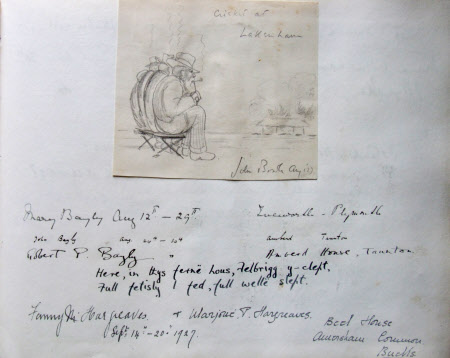 Cricket at
Lakenham
John Aug
Mary Bagly Aug 12th – 29th. Plymouth
John Bagly Aug. Taunton
Robert P. Bagly " House, Taunton.
Here, in thys fernë hous, Felbrigg y-clept,
Full fetisly I fed, full wellë slept.
Fanny M. Hargreaves. + Marjorie P. Hargreaves.
Sept. 14th – 20th 1927.
Beel House
Amersham Common
Bucks